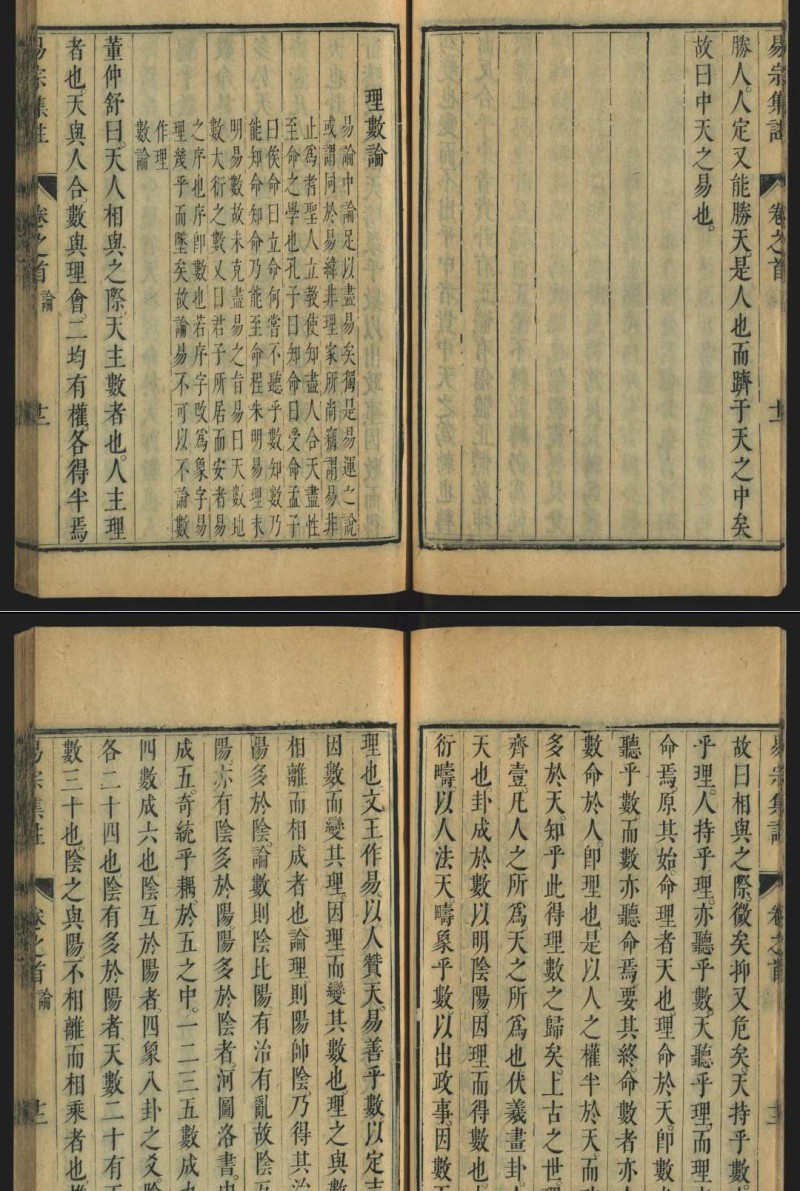 易宗集註
卷之首
勝人人定又能勝天。是人也而躋于天之中矣
故曰中天之易也。
理數論
易論中論足以盡易矣獨是易運之說
或謂同於易緯非理家所尚竊謂易非
止爲者聖人立教使知盡人合天盡性
至命之學也孔子曰知命曰受命孟子
曰俟命曰立命何嘗不聽乎數知數乃
能知命知命乃能至命程朱明易理未
明易數故未克盡易之旨易曰天數地
數大衍之數又曰君子所居而安者易
之序也序卽數也若序字改爲象字易
理幾乎而墜矣故論易不可以不論數
作理
數論
董仲舒曰。天人相與之際。天主數者也。人主理
者也。天與人合。數與理會。二均有權。各得半焉
易宗集註
卷之首
論
易宗集註
卷之首
故曰相與之際。微矣抑又危矣。天持乎數。
乎理。人持乎理。亦聽乎數。天聽乎理。而理
命焉。原其始。命理者天也。理命於天。卽數
聽乎數。而數亦聽命焉。要其終。命數者亦
數命於人。卽理也。是以人之權半於天而
多於天。知乎此。得理數之歸矣。上古之世
齊壹。凡人之所爲。天之所爲也。伏羲畫卦。
天也。卦成於數。以明陰陽。因理而得數也。
衍疇。以人法天。疇象乎數。以出政事。因數
理也。文王作易。以人贊天。易善乎數以定
因數而變其理。因理而變其數也。理之與數
相離而相成者也。論理則陽帥陰。乃得其治
陽多於陰。論數則陰比陽。有治有亂。故陰
陽。亦有陰多於陽。陽多於陰者。河圖洛書。
成五。奇統乎耦。於五之中。一二三五數成
四數成六也。陰互於陽者。四象八卦之爻。
各二十四也。陰有多於陽者。天數二十有
數三十也。陰之與陽。不相離而相乘者也。
易宗集註
卷之首
論